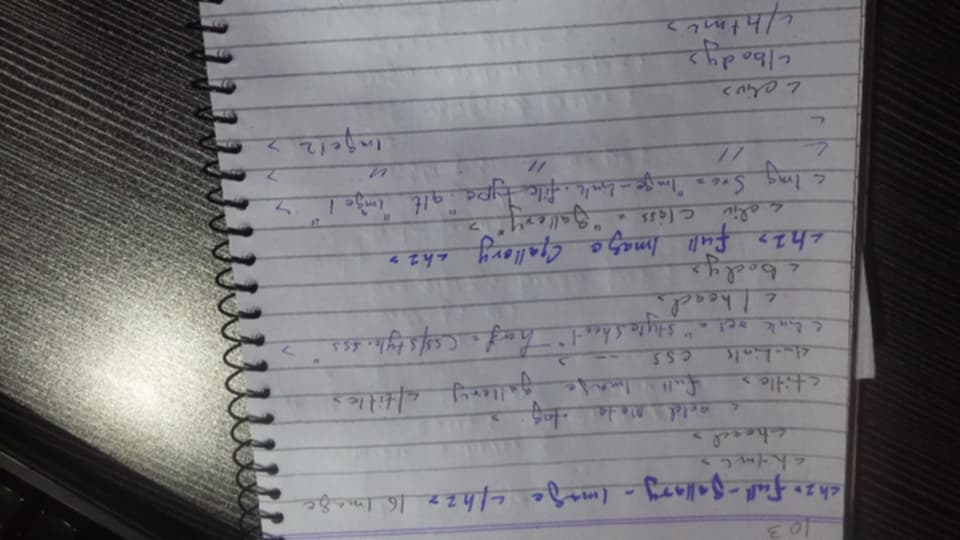 103
<h2> full-gallary-Image </h2> 16 Image
<html>
<head>
< add meta tag >
<title> full Image gallery </title>
<!-- Link css -- >
<link rel= "stylesheet" href = css/style.css" >
</head>
<body>
<h2> full Image Gallary <h2>
<div class = "gallery" >
<Img Src= "Image-link.file type" alt "Image 1" >
< " " " >
< Image 12 >
<div>
</body>
</html>